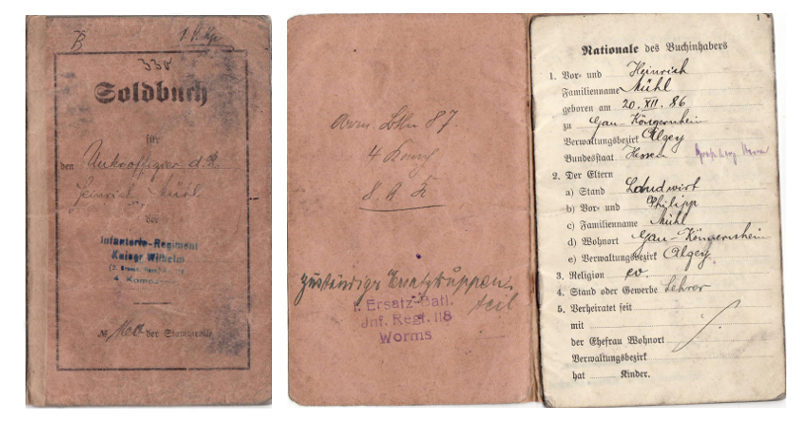 338
Soldbuch
für
den Unteroffizier d.R.
Heinrich Mühl
der
Infanterie-Regiment
Kaiser Wilhelm
4 Kompagnie
№ der Stammrolle
Arm. Batl. 87
4 Komp
8. A. K
zuständiger Ersatztruppen
teil
I. Ersatz-Batl.
Inf. Regt. 118
Worms
1
Nationale des Buchinhabers
1. Vor- und Heinrich
Familienname Mühl
geboren am 20. XII. 86
zu Gau-Köngernheim
Verwaltungsbezirk Alzey
Bundesstaat Hessen
2. Der Eltern
a) Stand Landwirt
b) Vor- und Philipp
c) Familienname Mühl
d) Wohnort Gau-Köngernheim
e) Verwaltungsbezirk Alzey
3. Religion ev.
4. Stand oder Gewerbe Lehrer
5. Verheiratet seit
mit
der Ehefrau Wohnort
Verwaltungsbezirk
hat Kinder.